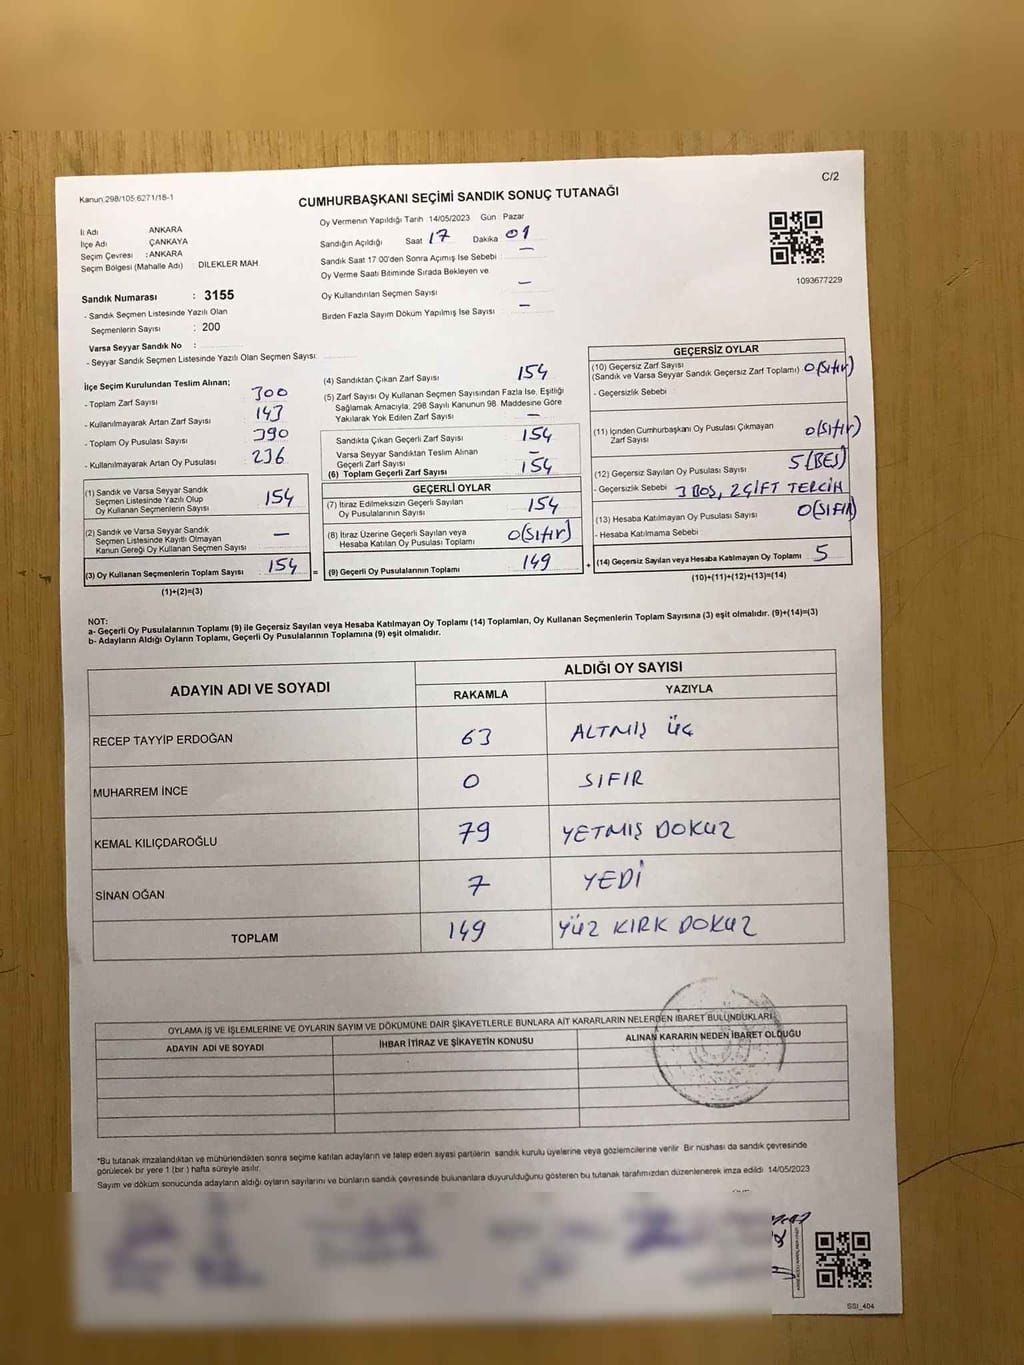 Kanun 298/105;6271/18-1
C/2
CUMHURBAŞKANI SEÇİMİ SANDIK SONUÇ TUTANAĞI
İl Adı : ANKARA
İlçe Adı : ÇANKAYA
Seçim Çevresi : ANKARA
Seçim Bölgesi (Mahalle Adı) : DİLEKLER MAH
Sandık Numarası : 3155
- Sandık Seçmen Listesinde Yazılı Olan
Seçmenlerin Sayısı : 200
Varsa Seyyar Sandık No :
- Seyyar Sandık Seçmen Listesinde Yazılı Olan Seçmen Sayısı:
Oy Vermenin Yapıldığı Tarih :14/05/2023 Gün : Pazar
Sandığın Açıldığı Saat 17 Dakika 01
Sandık Saat 17:00'den Sonra Açımış İse Sebebi : —
Oy Verme Saati Bitiminde Sırada Bekleyen ve
Oy Kullandırılan Seçmen Sayısı —
Birden Fazla Sayım Döküm Yapılmış İse Sayısı —
1093677229
İlçe Seçim Kurulundan Teslim Alınan;
- Toplam Zarf Sayısı 300
- Kullanılmayarak Artan Zarf Sayısı 143
- Toplam Oy Pusulası Sayısı 390
- Kullanılmayarak Artan Oy Pusulası 236
(1) Sandık ve Varsa Seyyar Sandık
Seçmen Listesinde Yazılı Olup
Oy Kullanan Seçmenlerin Sayısı 154
(2) Sandık ve Varsa Seyyar Sandık
Seçmen Listesinde Kayıtlı Olmayan
Kanun Gereği Oy Kullanan Seçmen Sayısı —
(3) Oy Kullanan Seçmenlerin Toplam Sayısı 154 =
(1)+(2)=(3)
(4) Sandıktan Çıkan Zarf Sayısı 154
(5) Zarf Sayısı Oy Kullanan Seçmen Sayısından Fazla İse, Eşitliği
Sağlamak Amacıyla, 298 Sayılı Kanunun 98. Maddesine Göre
Yakılarak Yok Edilen Zarf Sayısı —
Sandıkta Çıkan Geçerli Zarf Sayısı 154
Varsa Seyyar Sandıktan Teslim Alınan
Geçerli Zarf Sayısı —
(6) Toplam Geçerli Zarf Sayısı 154
GEÇERLİ OYLAR
(7) İtiraz Edilmeksizin Geçerli Sayılan
Oy Pusulalarının Sayısı 154
(8) İtiraz Üzerine Geçerli Sayılan veya
Hesaba Katılan Oy Pusulası Toplamı 0(Sıfır)
(9) Geçerli Oy Pusulalarının Toplamı 149 +
GEÇERSİZ OYLAR
(10) Geçersiz Zarf Sayısı
(Sandık ve Varsa Seyyar Sandık Geçersiz Zarf Toplamı) 0(Sıfır)
- Geçersizlik Sebebi
(11) İçinden Cumhurbaşkanı Oy Pusulası Çıkmayan
Zarf Sayısı 0(Sıfır)
(12) Geçersiz Sayılan Oy Pusulası Sayısı 5(BEŞ)
- Geçersizlik Sebebi 3 BOŞ, 2 ÇİFT TERCİH
(13) Hesaba Katılmayan Oy Pusulası Sayısı 0(SIFIR)
- Hesaba Katılmama Sebebi
(14) Geçersiz Sayılan veya Hesaba Katılmayan Oy Toplamı 5
(10)+(11)+(12)+(13)=(14)
NOT:
a- Geçerli Oy Pusulalarının Toplamı (9) ile Geçersiz Sayılan veya Hesaba Katılmayan Oy Toplamı (14) Toplamları, Oy Kullanan Seçmenlerin Toplam Sayısına (3) eşit olmalıdır. (9)+(14)=(3)
b- Adayların Aldığı Oyların Toplamı, Geçerli Oy Pusulalarının Toplamına (9) eşit olmalıdır.
ADAYIN ADI VE SOYADI ALDIĞI OY SAYISI
RAKAMLA YAZIYLA
RECEP TAYYİP ERDOĞAN 63 ALTMIŞ ÜÇ
MUHARREM İNCE 0 SIFIR
KEMAL KILIÇDAROĞLU 79 YETMİŞ DOKUZ
SİNAN OĞAN 7 YEDİ
TOPLAM 149 YÜZ KIRK DOKUZ
OYLAMA İŞ VE İŞLEMLERİNE VE OYLARIN SAYIM VE DÖKÜMÜNE DAİR ŞİKAYETLERLE BUNLARA AİT KARARLARIN NELERDEN İBARET BULUNDUKLARI
ADAYIN ADI VE SOYADI İHBAR İTİRAZ VE ŞİKAYETİN KONUSU ALINAN KARARIN NEDEN İBARET OLDUĞU
*Bu tutanak imzalandıktan ve mühürlendikten sonra seçime katılan adayların ve talep eden siyasi partilerin sandık kurulu üyelerine veya gözlemcilerine verilir. Bir nüshası da sandık çevresinde
görülecek bir yere 1 (bir ) hafta süreyle asılır.
Sayım ve döküm sonucunda adayların aldığı oyların sayılarını ve bunların sandık çevresinde bulunanlara duyurulduğunu gösteren bu tutanak tarafımızdan düzenlenerek imza edildi 14/05/2023
SSI_404